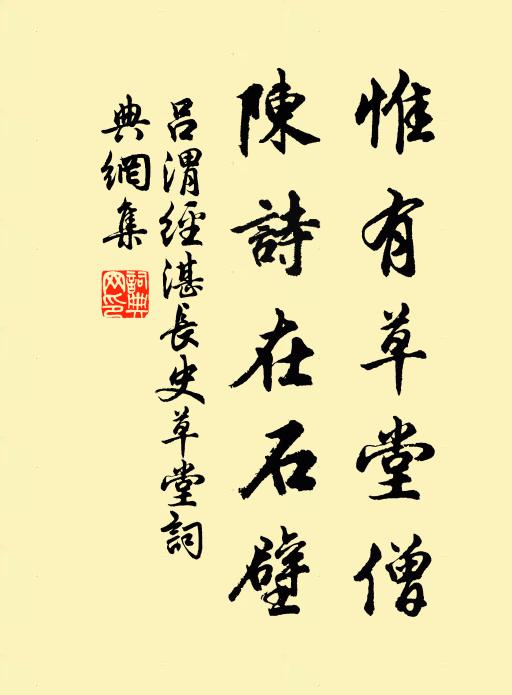 惟有草堂僧
陳詩在石壁
吕渭經湛長史草堂詞
典網集
詞典網印